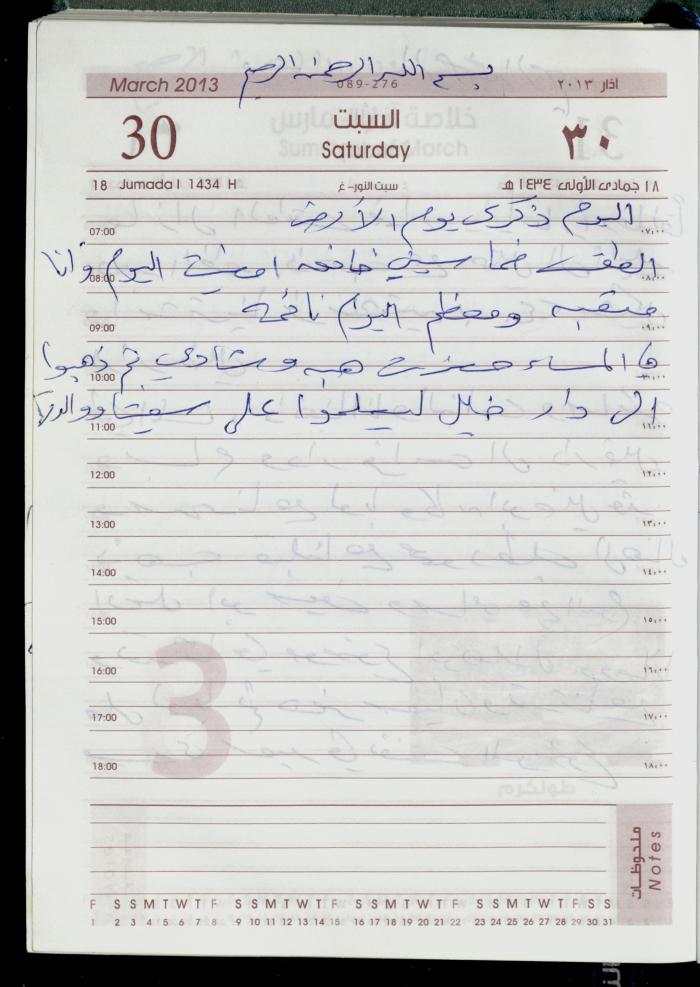 بسم الله الرحمن الرحيم
March 2013 089-276 اذار ٢٠١٣
30 السبت ٣٠
Saturday
18 Jumada I 1434 H سبت النور-غ ١٨ جمادى الأولى ١٤٣٤ هـ
اليوم ذكرى يوم الأرض
07:00 ٠٧:٠٠
الطقس خماسيني خانقه امضيت اليوم وأنا
08:00 ٠٨:٠٠
متعبه ومعظم اليوم نائمة
09:00 ٠٩:٠٠
في المساء حضرت هبه وشادي ثم ذهبوا
10:00 ١٠:٠٠
الى دار خليل ليسلموا على
11:00 ١١:٠٠
12:00 ١٢:٠٠
13:00 ١٣:٠٠
14:00 ١٤:٠٠
15:00 ١٥:٠٠
16:00 ١٦:٠٠
17:00 ١٧:٠٠
18:00 ١٨:٠٠
3
ملحوظات
Notes
F S S M T W T F S S M T W T F S S M T W T F S S M T W T F S S
1 2 3 4 5 6 7 8 9 10 11 12 13 14 15 16 17 18 19 20 21 22 23 24 25 26 27 28 29 30 31